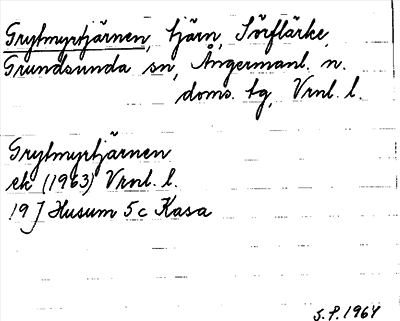 Grytmyrtjärnen, tjärn, Sörflärke,
Grundsunda sn, Ångermanl. n.
doms. tg, Vrnl. l.
Grytmyrtjärnen
ek (1963) Vrnl. l.
19 J Husum 5c Kasa
S.P. 1964